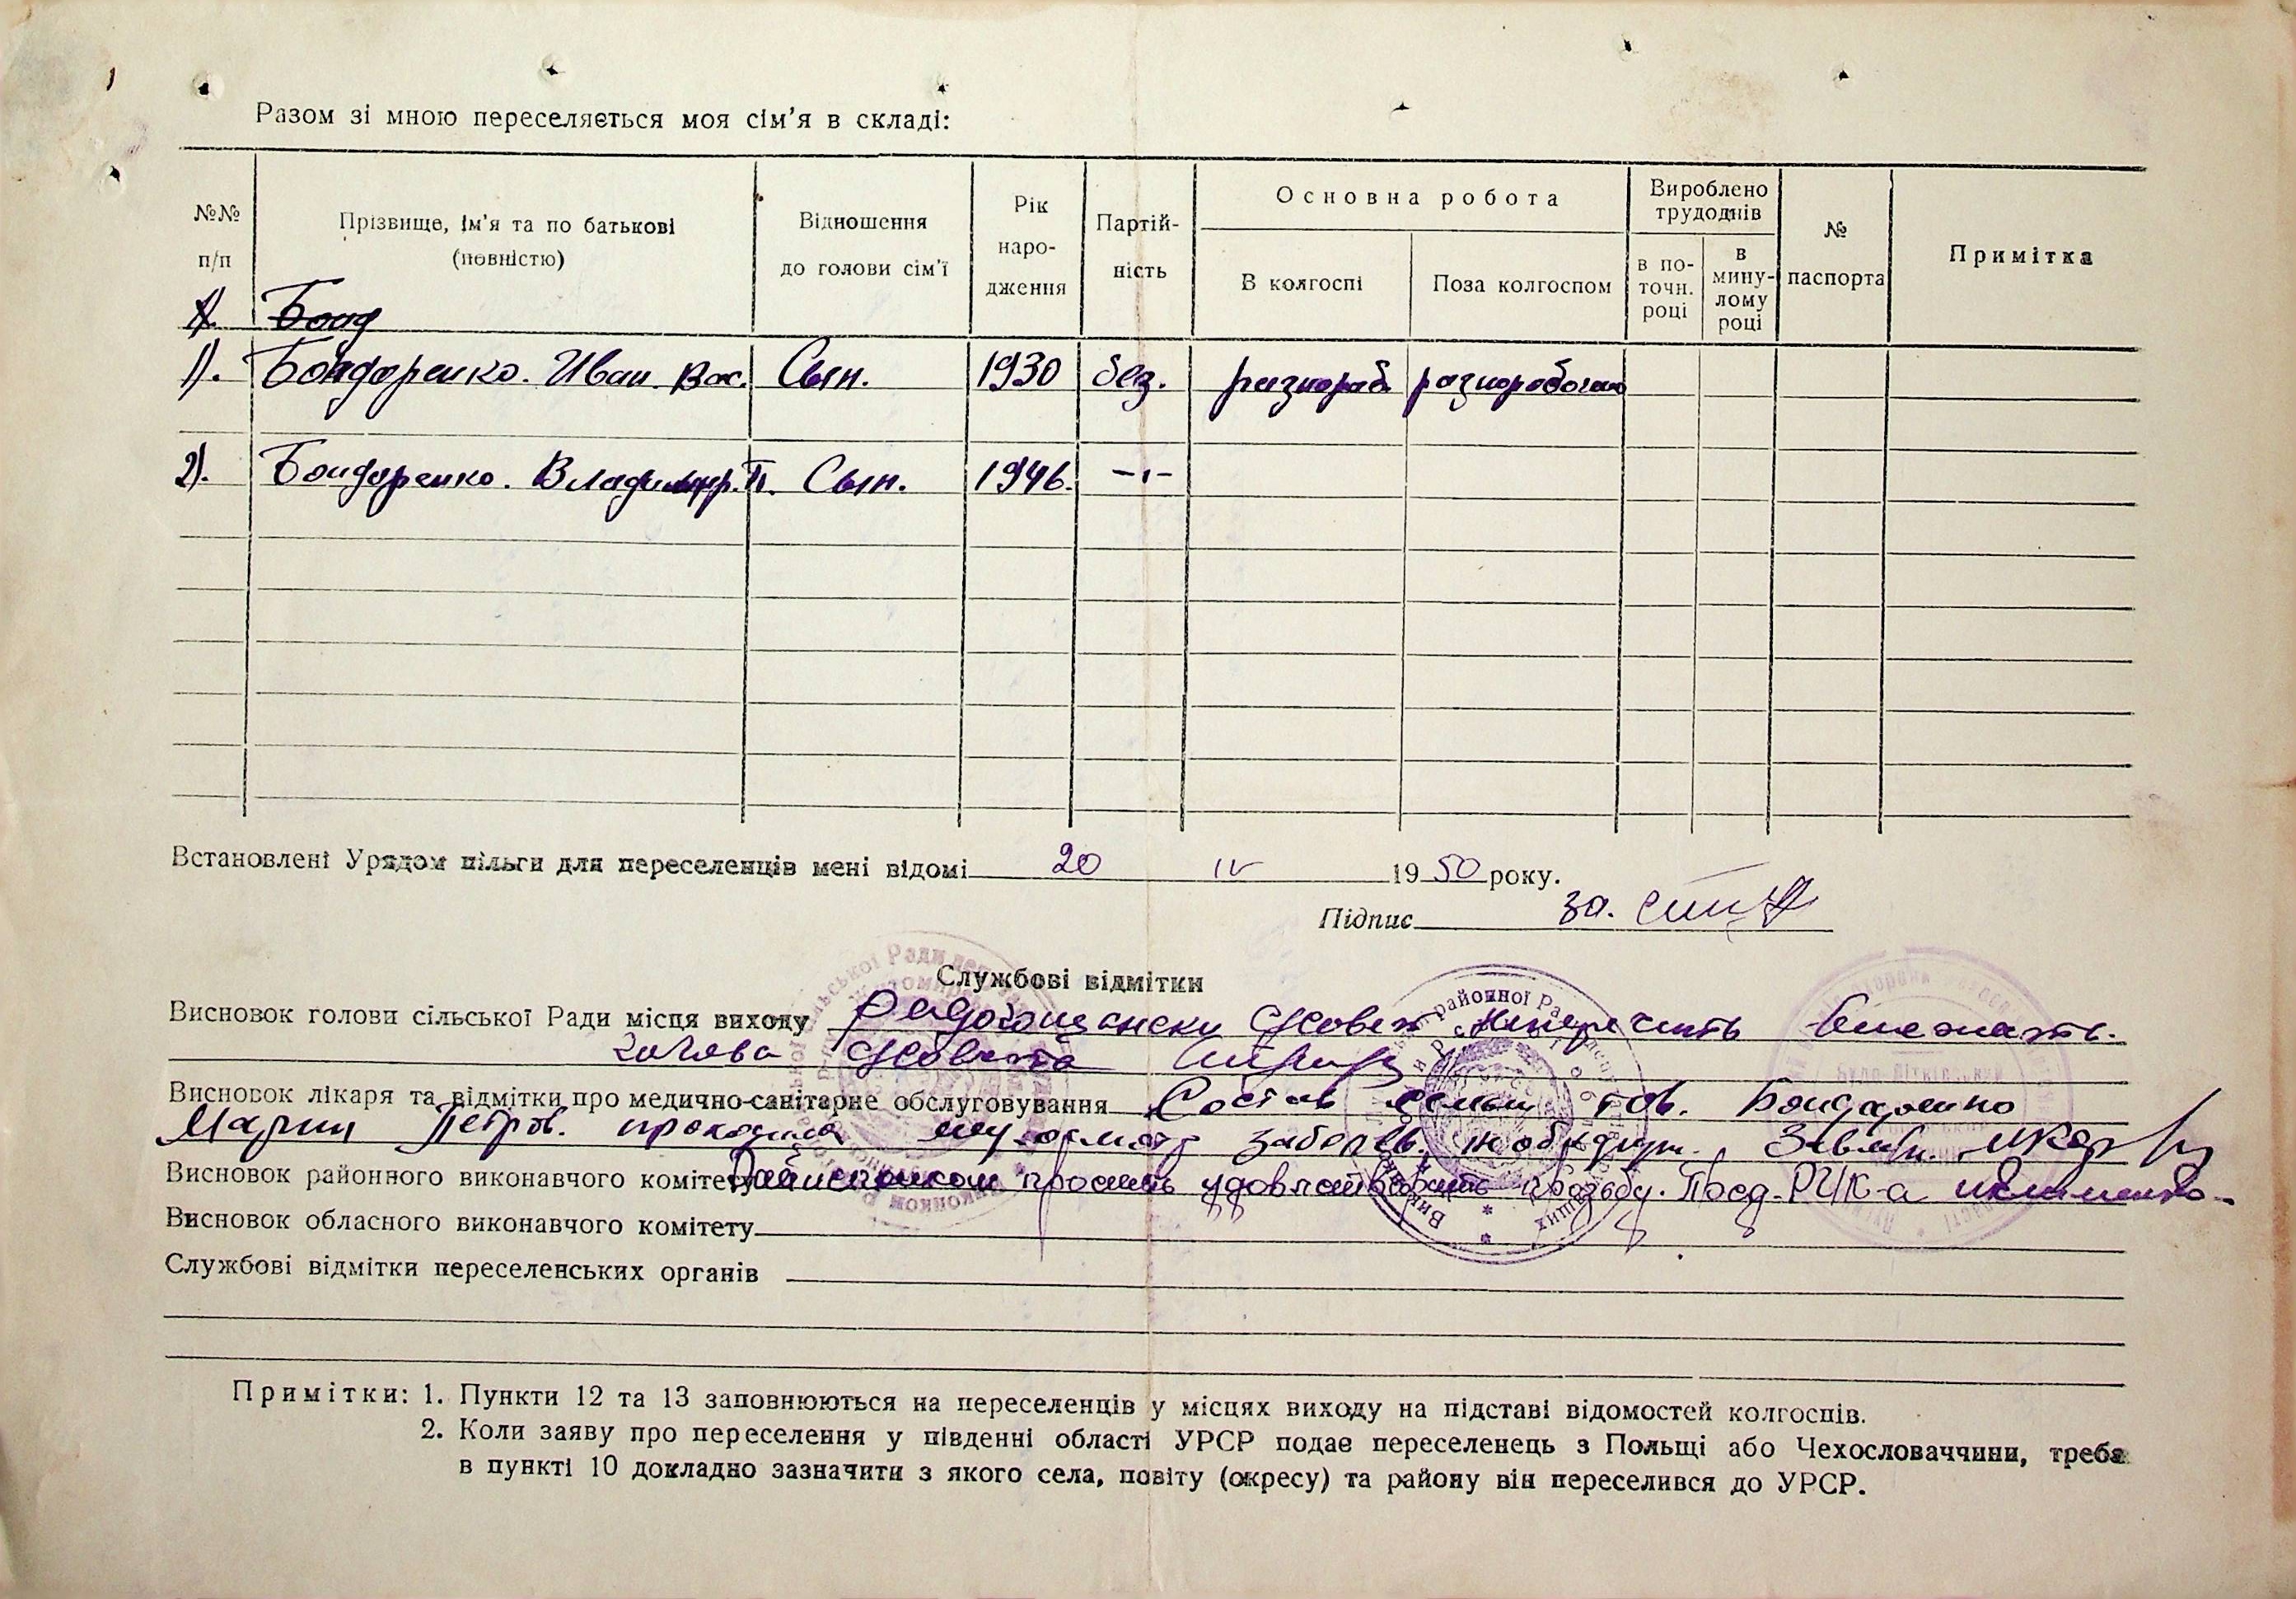 Разом зі мною переселяється моя сім'я в складі:
№№ п/п
Прізвище, ім'я та по батькові (повністю)
Відношення до голови сім'ї
Рік народження
Партійність
Основна робота
В колгоспі
Поза колгоспом
Вироблено трудоднів
в поточн. році
в минулому році
№ паспорта
Примітка
1). Бонд
1). Бондаренко. Иван. Вас. Сын. 1930 без. разнораб. разнорабочий
2). Бондаренко. Владимир. П. Сын. 1946. -"-
Встановлені Урядом пільги для переселенців мені відомі 20 IV 1950 року.
Підпис за.
Службові відмітки
Висновок голови сільської Ради місця виходу
Голова
Висновок лікаря та відмітки про медично-санітарне обслуговування Состав семьи тов. Бондаренко
Марии Петров. забол.
Висновок районного виконавчого комітету Райисполком просить удовлетворить просьбу. Пред. РИК-а
Висновок обласного виконавчого комітету
Службові відмітки переселенських органів
Примітки: 1. Пункти 12 та 13 заповнюються на переселенців у місцях виходу на підставі відомостей колгоспів.
2. Коли заяву про переселення у південні області УРСР подає переселенець з Польщі або Чехословаччини, треба
в пункті 10 докладно зазначити з якого села, повіту (окресу) та району він переселився до УРСР.